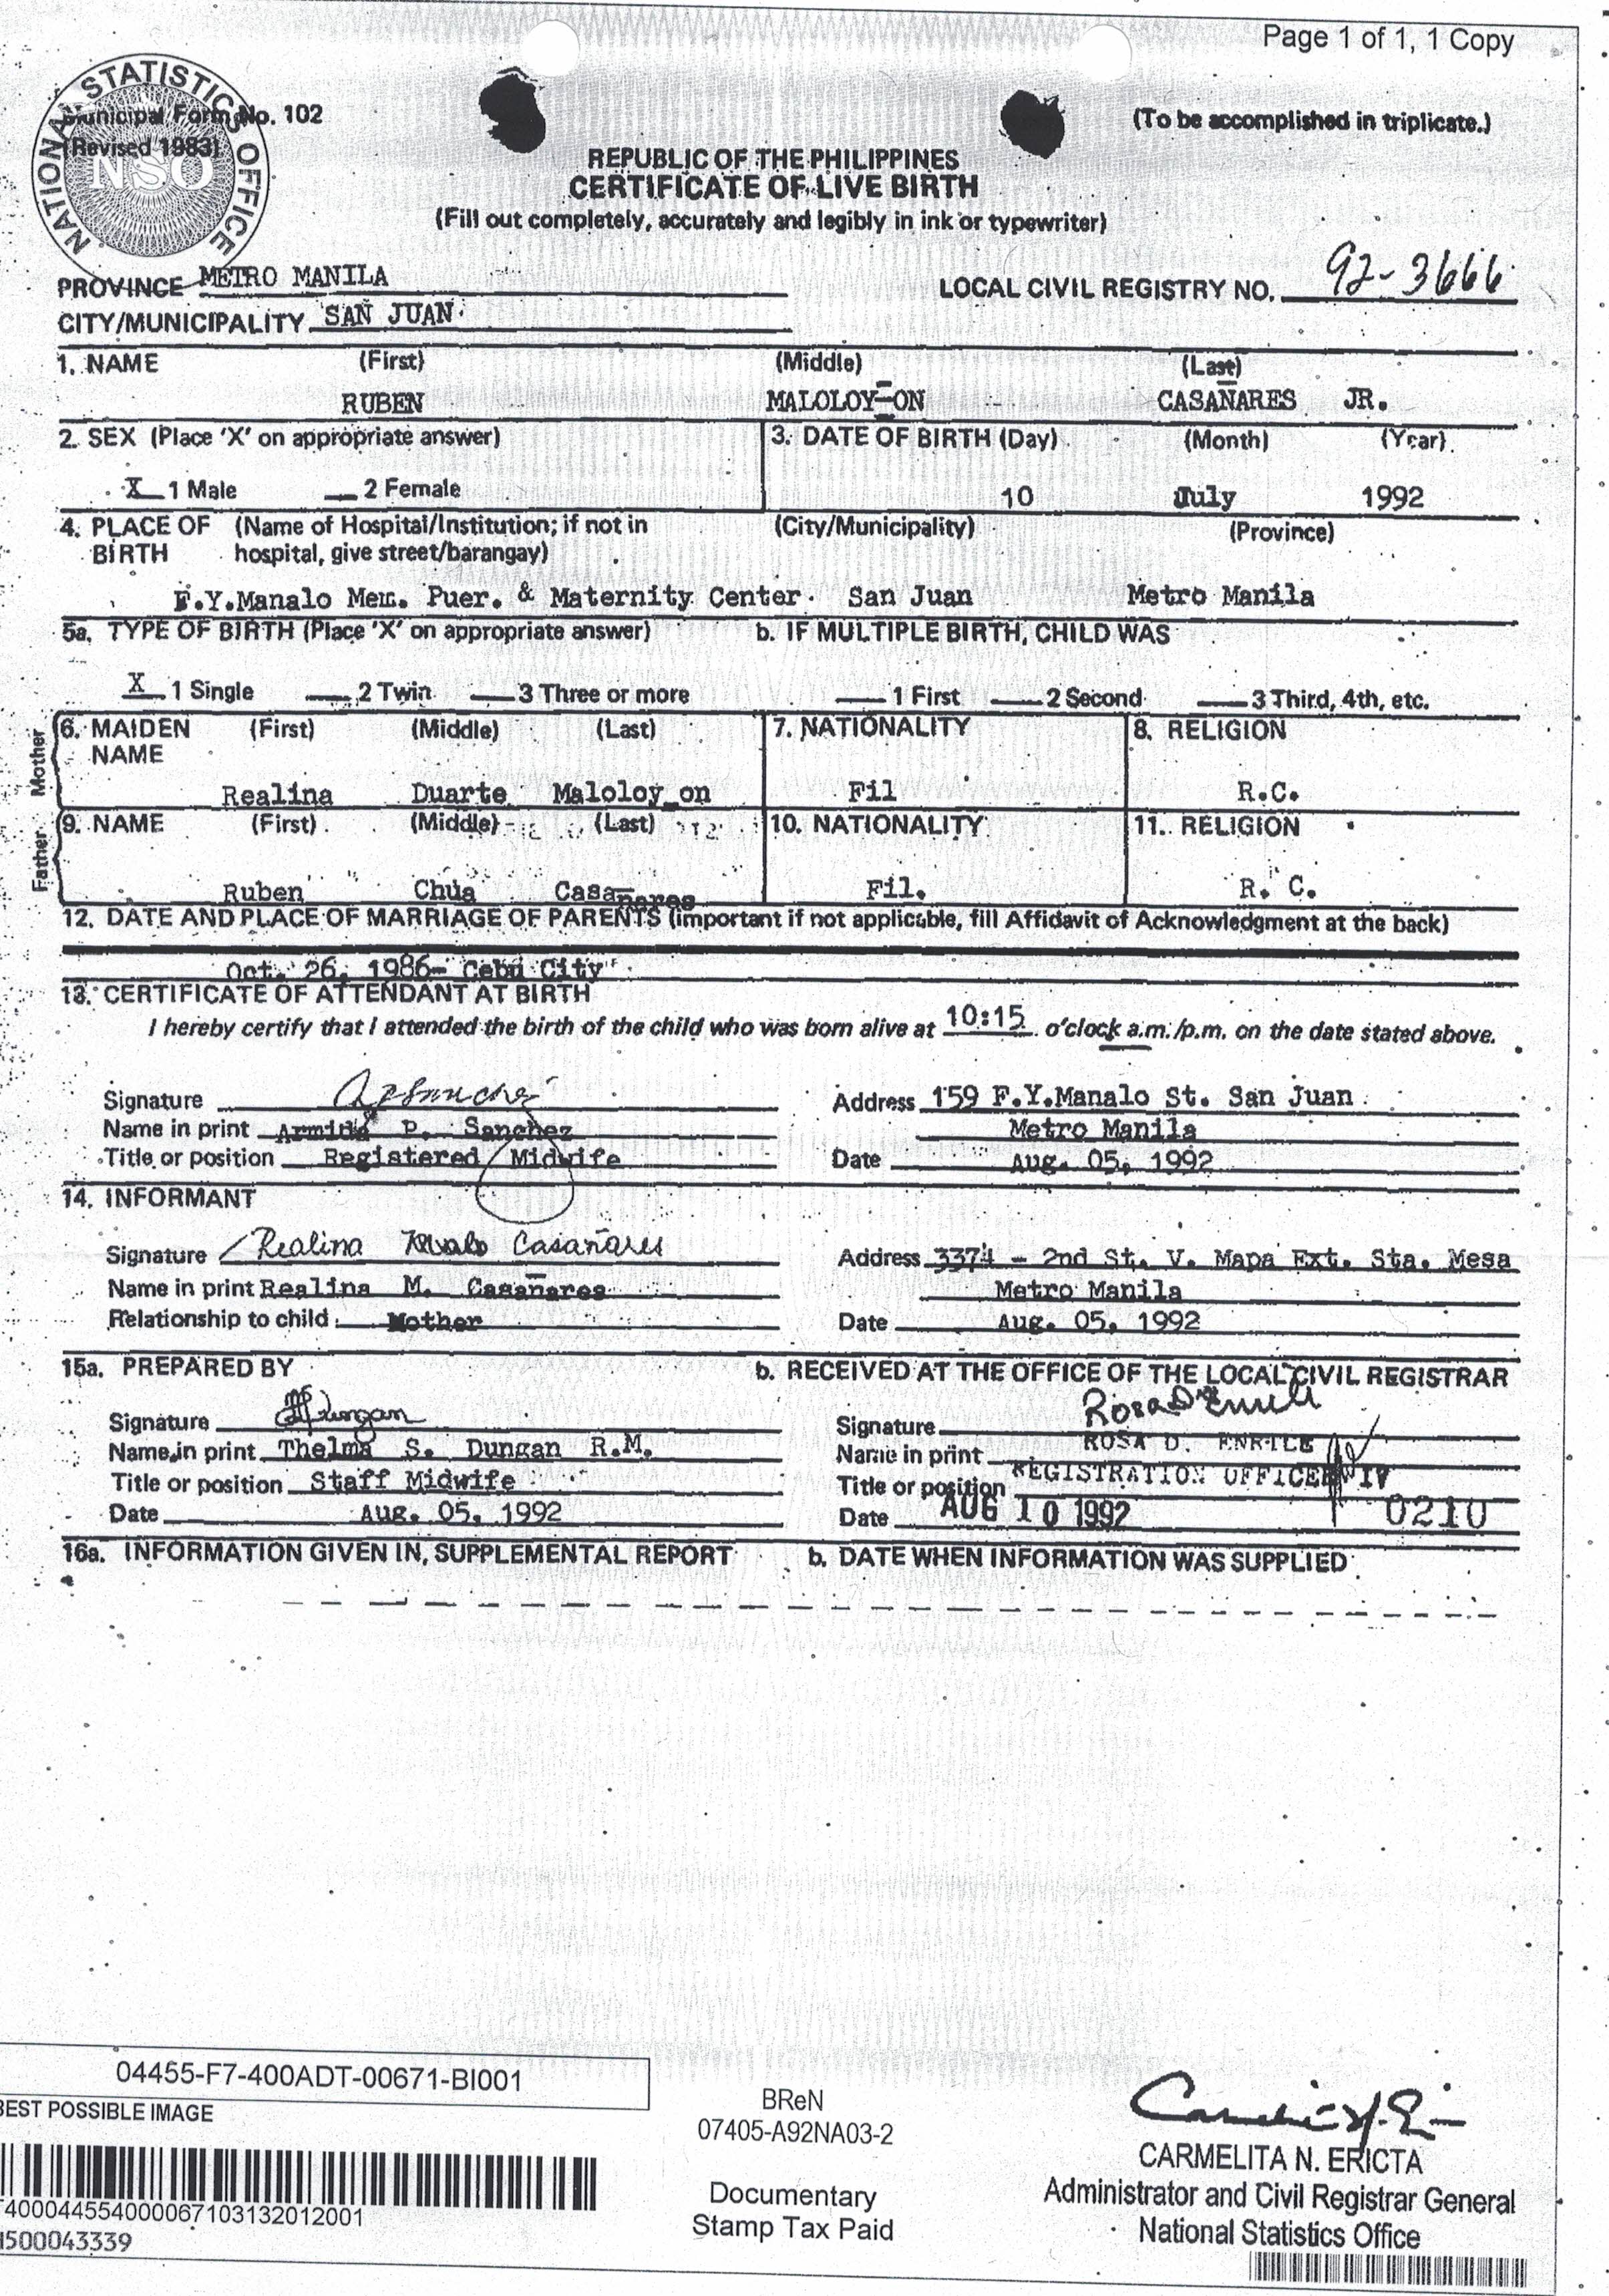 Page 1 of 1, 1 Copy
NATIONAL STATISTICS OFFICE
NSO
Municipal Form No. 102
(Revised 1983)
(To be accomplished in triplicate.)
REPUBLIC OF THE PHILIPPINES
CERTIFICATE OF LIVE BIRTH
(Fill out completely, accurately and legibly in ink or typewriter)
PROVINCE METRO MANILA LOCAL CIVIL REGISTRY NO. 92-3666
CITY/MUNICIPALITY SAN JUAN
1. NAME (First) (Middle) (Last)
RUBEN MALOLOY-ON CASAÑARES JR.
2. SEX (Place 'X' on appropriate answer) 3. DATE OF BIRTH (Day) (Month) (Year)
X 1 Male 2 Female 10 July 1992
4. PLACE OF (Name of Hospital/Institution; if not in (City/Municipality) (Province)
BIRTH hospital, give street/barangay)
F.Y.Manalo Mem. Puer. & Maternity Center San Juan Metro Manila
5a. TYPE OF BIRTH (Place 'X' on appropriate answer) b. IF MULTIPLE BIRTH, CHILD WAS
X 1 Single 2 Twin 3 Three or more 1 First 2 Second 3 Third, 4th, etc.
Mother
6. MAIDEN (First) (Middle) (Last) 7. NATIONALITY 8. RELIGION
NAME
Realina Duarte Maloloy_on Fil R.C.
Father
9. NAME (First) (Middle) (Last) 10. NATIONALITY 11. RELIGION
Ruben Chua Casañares Fil. R. C.
12. DATE AND PLACE OF MARRIAGE OF PARENTS (important if not applicable, fill Affidavit of Acknowledgment at the back)
Oct. 26, 1986- Cebu City
13. CERTIFICATE OF ATTENDANT AT BIRTH
I hereby certify that I attended the birth of the child who was born alive at 10:15 o'clock a.m./p.m. on the date stated above.
Signature Address 159 F.Y.Manalo St. San Juan
Name in print Armida P. Sanchez Metro Manila
Title or position Registered Midwife Date Aug. 05, 1992
14. INFORMANT
Signature Realina Casañares Address 3374 - 2nd St. V. Mapa Ext. Sta. Mesa
Name in print Realina M. Casañares Metro Manila
Relationship to child Mother Date Aug. 05, 1992
15a. PREPARED BY b. RECEIVED AT THE OFFICE OF THE LOCAL CIVIL REGISTRAR
Signature Signature
Name in print Thelma S. Dungan R.M. Name in print ROSA D. ENRILE
Title or position Staff Midwife Title or position REGISTRATION OFFICER IV
Date Aug. 05, 1992 Date AUG 10 1992 0210
16a. INFORMATION GIVEN IN, SUPPLEMENTAL REPORT b. DATE WHEN INFORMATION WAS SUPPLIED
04455-F7-400ADT-00671-BI001
BEST POSSIBLE IMAGE
BReN
07405-A92NA03-2
Documentary
Stamp Tax Paid
CARMELITA N. ERICTA
Administrator and Civil Registrar General
National Statistics Office